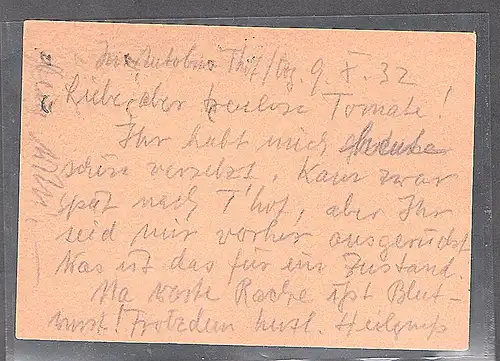 Im Autobus Thf/Bg. 9. X. 32
Liebe, aber treulose Tomate!
Ihr habt mich heute
schön versetzt. Kam zwar
spät nach T'hof, aber Ihr
seid mir vorher ausgerückt
Was ist das für ein Zustand.
Na warte Rache ist Blut-
wurst! Trotzdem herzl. Heilgruß